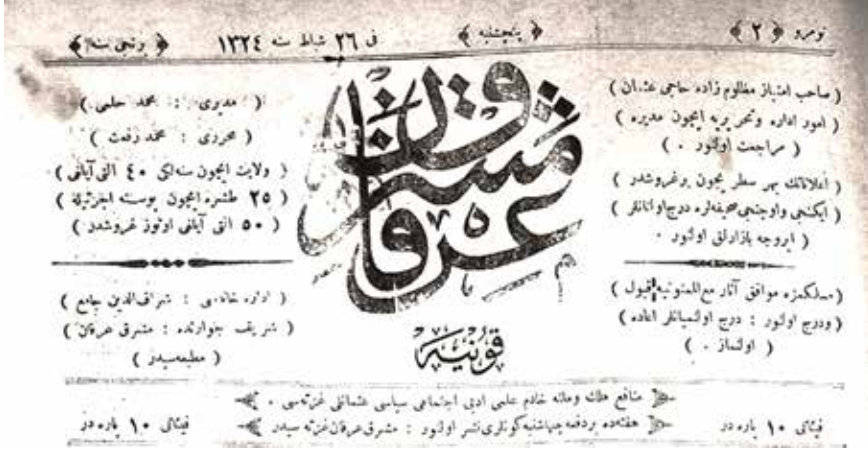 نومرو ﴿ ٢ ﴾ ﴿ پنچشنبه ﴾ فى ٢٦ شباط سنه ١٣٢٤ ﴿ برنجى سنه ﴾
( صاحب امتياز مظلوم زاده حاجى عثمان )
( امور اداره وتحريريه ايچون مديره )
( مراجعت اولنور . )
( اعلاناتك بهر سطر يچون بر غروشدر )
( ايكنجى واوچنجى صحيفه لره درج اولنانلر )
( ايروجه بازارلق اولنور .
( مسلكمزه موافق آثار مع الممنونيه قبول )
( ودرج اولنور : درج اولنميانلر اعاده )
( اولنماز . )
مشرق عرفان
قونيه
( مديرى : محمد حلمى )
( محررى : محمد رفعت )
( ولايت ايچون سنه لكى ٤٠ التى آيلغى )
( ٢٥ طشره ايچون پوسته اجرتيله )
( ٥٠ التى آيلغى اوتوز غروشدر )
( اداره خانه سى : شراف الدين جامع )
( شريف جوارنده : مشرق عرفان )
( مطبعه سيدر )
منافع ملك وملته خادم علمى ادبى اجتماعى سياسى عثمانلى غزته سى .
فيئاتى ١٠ پاره در هفته ده بر دفعه چهارشنبه كونلرى نشر اولنور : مشرق عرفان غزته سيدر فيئاتى ١٠ پاره در